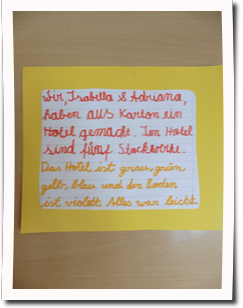 Wir, Isabella & Adriana,
haben aus Karton ein
Hotel gemacht. Im Hotel
sind fünf Stockwerke.
Das Hotel ist grau, grün,
gelb, blau und der Boden
ist violett. Alles war leicht.